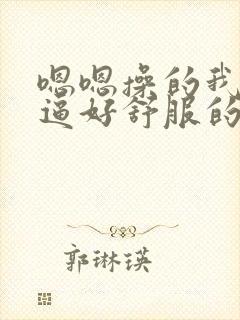 嗯嗯操的我
逼好舒服的
郭琳瑛